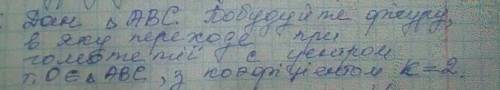 Дан △ ABC. Побудуйте фігуру,
в яку переходе при
гомотетії с центром
т. O ∈ △ ABC, з коефіцієнтом K = 2.